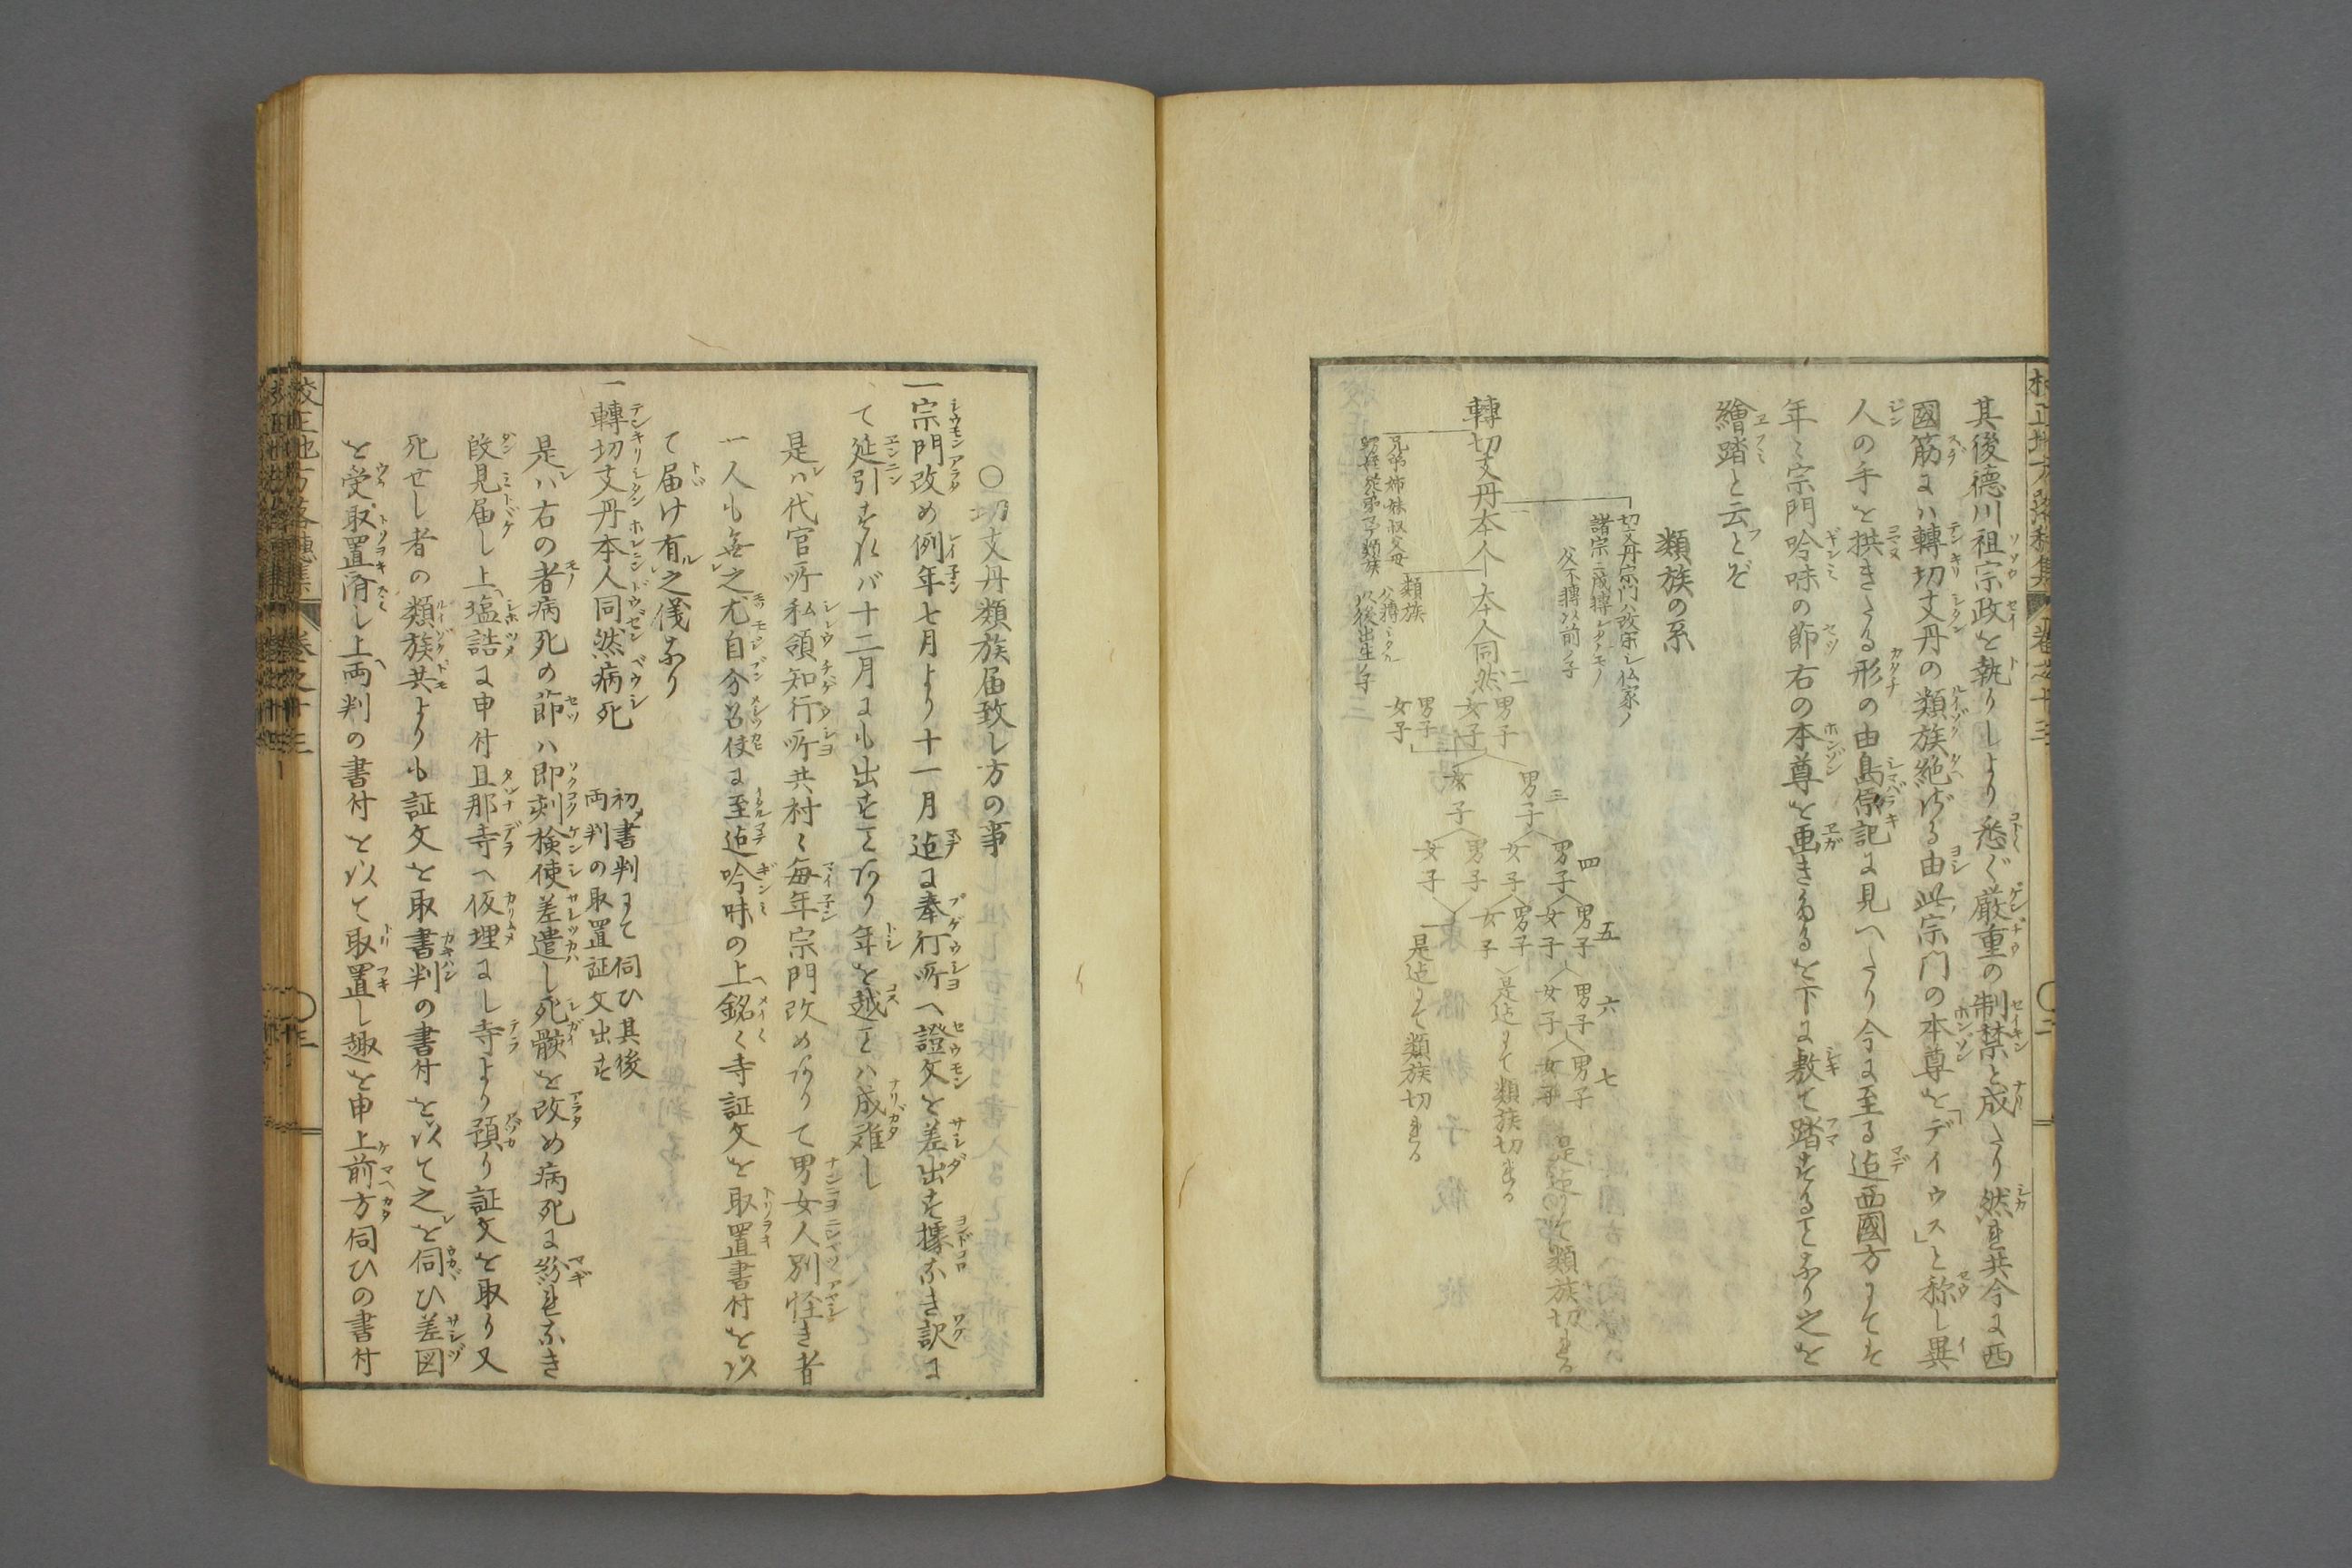 其後德川祖宗政を執りしより悉ぐ厳重の制禁と成たり然れ共今に西
國筋には轉切支丹の類族絶ざる由此宗門の本尊を「デイウス」と称し異
人の手を拱きたる形の由島原記に見へたり今に至る迠西國方にては
年々宗門吟味の節右の本尊を画きたるを下に敷て踏することなり之を
繪踏と云とぞ
類族の系
切支丹宗門ハ改宗シ仏家ノ
諸宗ニ成轉シタルモノ
父不轉以前ノ子
轉切支丹本人
本人同然
兄弟姉妹叔父母
類族
父轉シタル
以後出生ノ子
二
男子
女子
男子
女子
三
男子
女子
四
男子
女子
男子
女子
五
男子
女子
男子
女子
是迠にて類族切れる
六
男子
女子
是迠にて類族切れる
七
男子
女子
是迠にて類族切れる
○切支丹類族届致し方の事
一宗門改め例年七月より十一月迠に奉行所へ證文を差出す據なき訳に
て延引すれバ十二月にも出すことあり年を越ことハ成難し
是ハ代官所私領知行所共村々毎年宗門改めありて男女人別怪き者
一人も無之尤自分召使に至迠吟味の上銘々寺証文を取置書付を以
て届け有之儀なり
一轉切支丹本人同然病死 初書判にて伺ひ其後
両判の取置証文出す
是ハ右の者病死の節ハ即刻検使差遣し死骸を改め病死に紛れなき
段見届し上塩詰に申付旦那寺へ仮埋にし寺より預り証文を取り又
死せし者の類族共よりも証文を取書判の書付を以て之を伺ひ差図
を受取置済し上両判の書付を以て取置し趣を申上前方伺ひの書付
校正地方落穂集 卷之十三 〇三